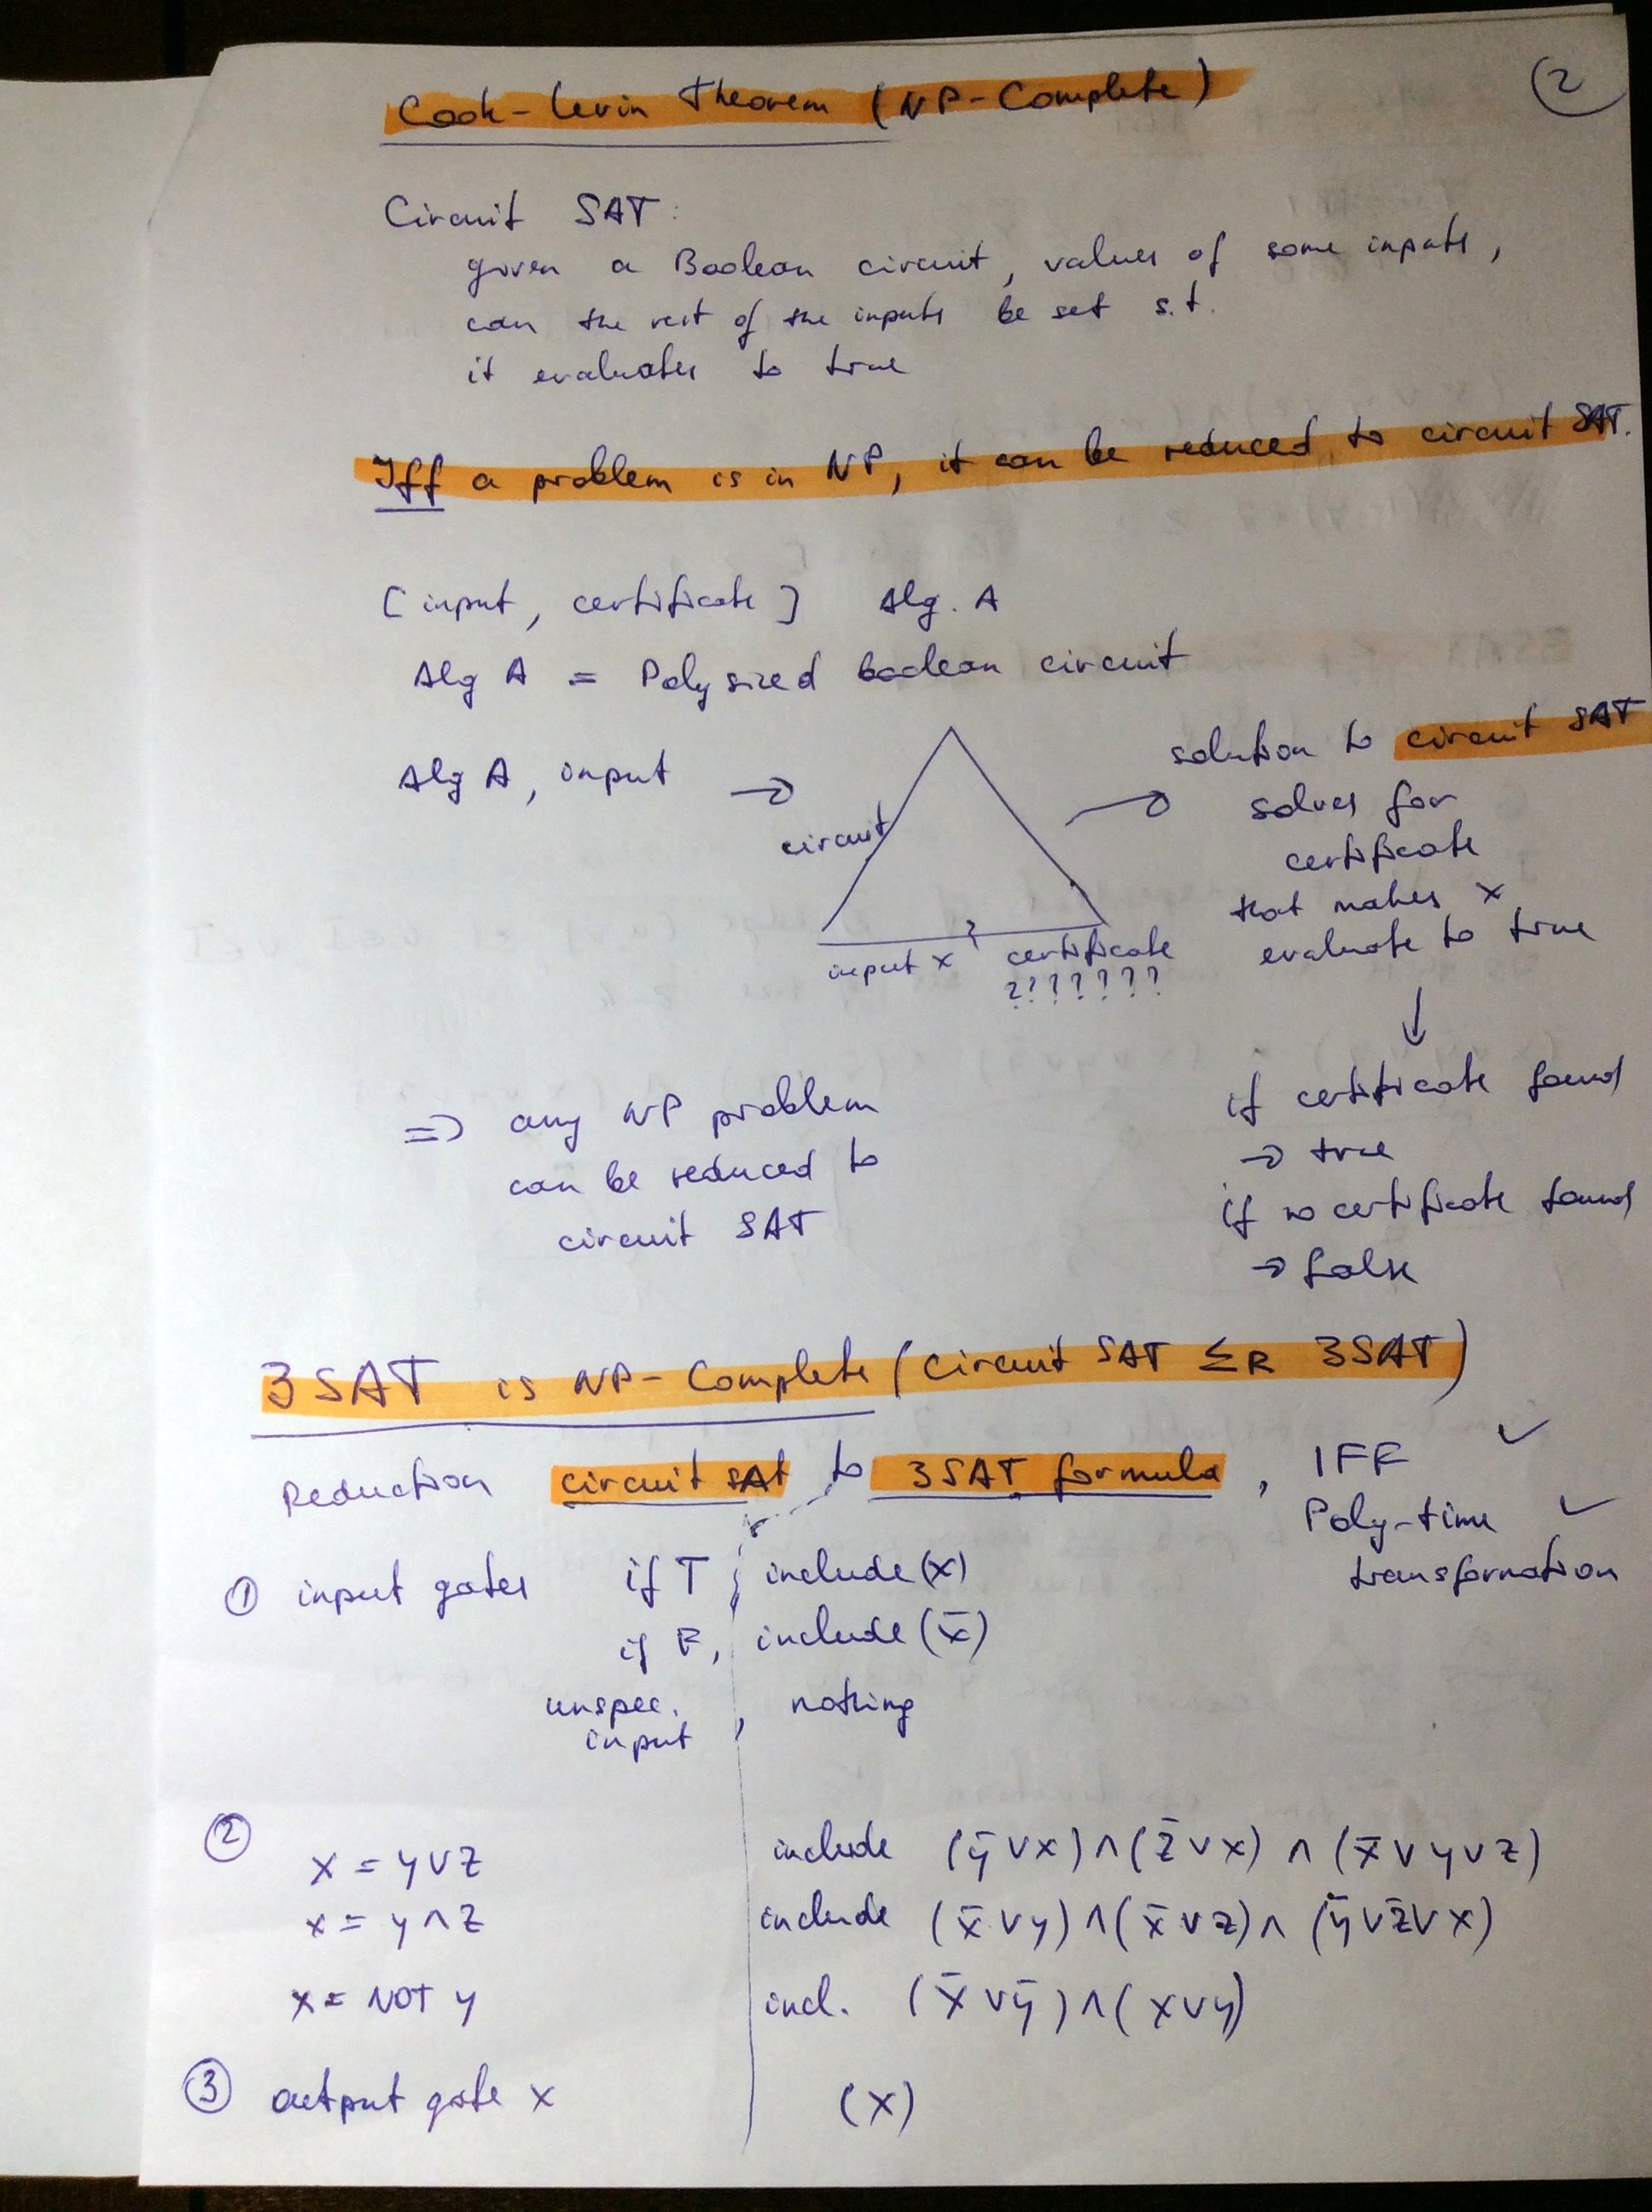 Cook-Levin Theorem (NP-Complete)
2
Circuit SAT:
given a Boolean circuit, values of some inputs,
can the rest of the inputs be set s.t.
it evaluates to true
Iff a problem is in NP, it can be reduced to circuit SAT.
[input, certificate] Alg. A
Alg A = Poly sized boolean circuit
Alg A, input →
circuit
input x
certificate
???????
→ solution to circuit SAT
solves for
certificate
that makes x
evaluate to true
↓
if certificate found
→ true
if no certificate found
→ false
=> any NP problem
can be reduced to
circuit SAT
3SAT is NP-Complete (Circuit SAT ≤R 3SAT)
Reduction circuit SAT to 3SAT formula, IFF ✓
Poly-time ✓
transformation
① input gates if T, include (x)
if F, include (x̄)
unspec. input, nothing
② x = y ∨ z include (ȳ ∨ x) ∧ (z̄ ∨ x) ∧ (x̄ ∨ y ∨ z)
x = y ∧ z include (x̄ ∨ y) ∧ (x̄ ∨ z) ∧ (ȳ ∨ z̄ ∨ x)
x = NOT y incl. (x̄ ∨ ȳ) ∧ (x ∨ y)
③ output gate x (x)